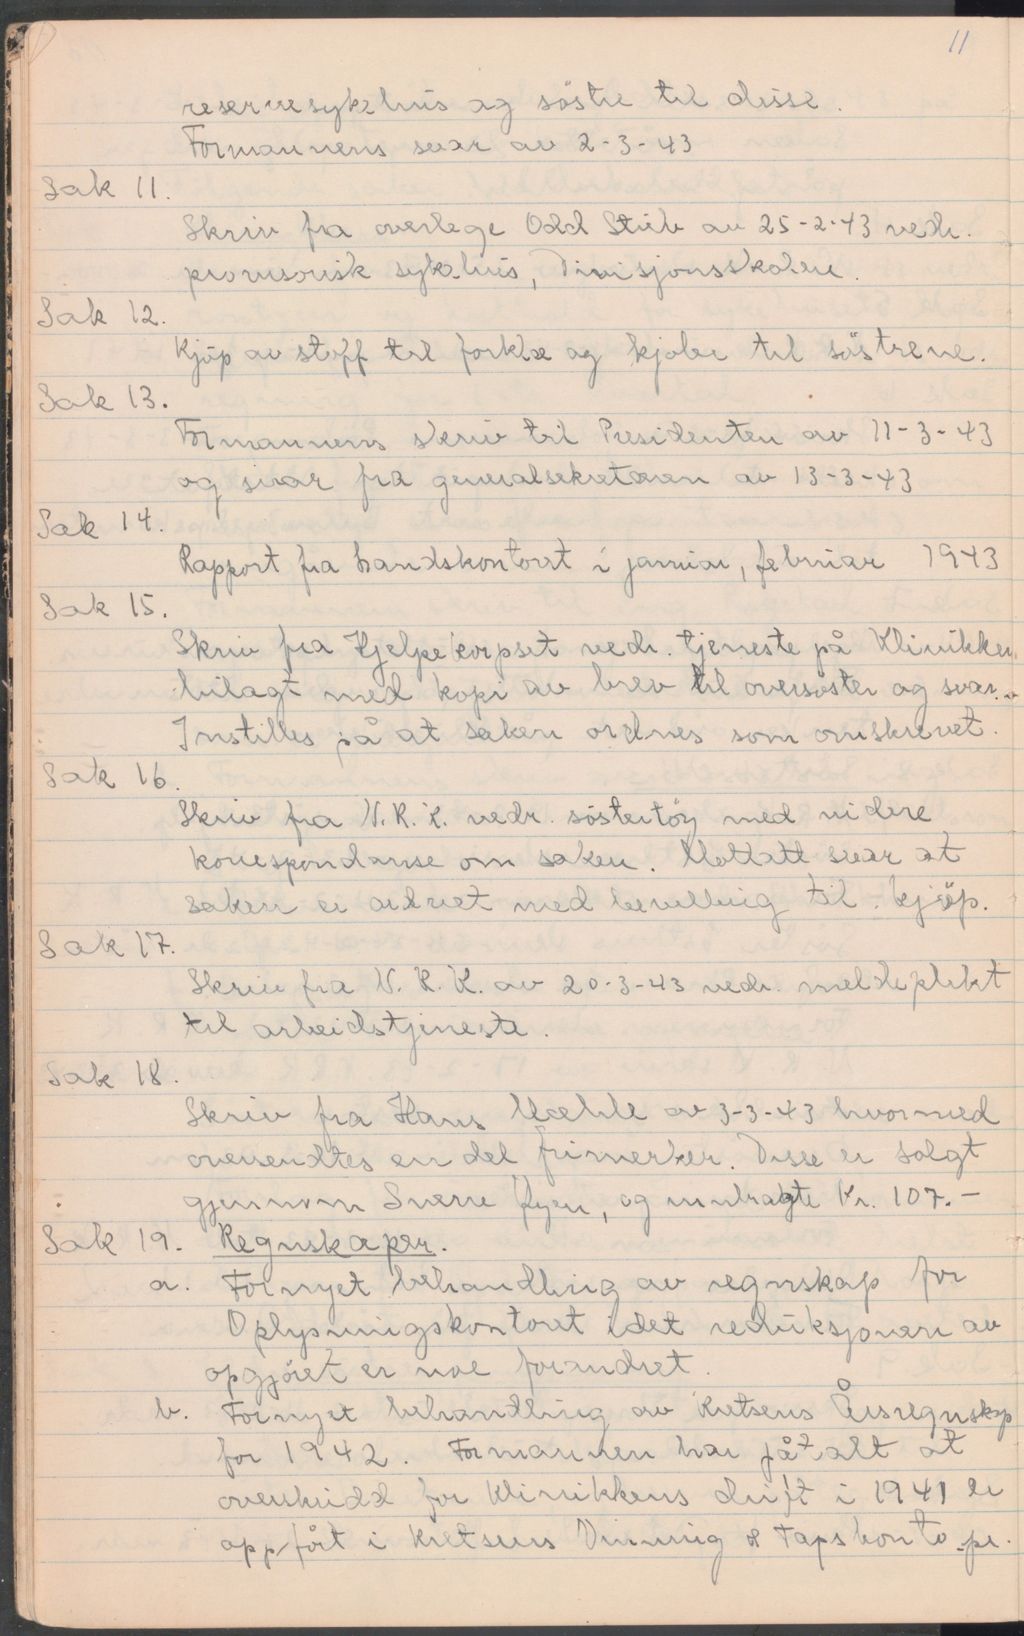 11
reservesykehus og söstre til disse.
Formannens svar av 2-3-43
Sak 11.
Skriv fra overlege Odd Stub av 25-2-43 vedr.
provisorisk sykehus, Divisjonsskolene.
Sak 12.
Kjöp av stoff til forklæ og kjoler til söstrene.
Sak 13.
Formannens skriv til Presidenten av 11-3-43
og svar fra generalsekretæren av 13-3-43
Sak 14.
Rapport fra Landskontoret i januar, februar 1943
Sak 15.
Skriv fra Hjelpekorpset vedr. tjeneste på Klinikken
bilagt med kopi av brev til oversöster og svar.
Instilles på at saken ordnes som omskrevet.
Sak 16.
Skriv fra N.R.K. vedr. söstertöy med videre
korrespondanse om saken. Mottatt svar at
saken er ordnet med bevilling til kjöp.
Sak 17.
Skriv fra N.R.K. av 20-3-43 vedr. meldeplikt
til arbeidstjeneste.
Sak 18.
Skriv fra Hans Mæhle av 3-3-43 hvormed
oversendtes en del frimerker. Disse er solgt
gjennom Sverre Ryen, og innbragte Kr. 107.-
Sak 19. Regnskaper.
a. Fornyet behandling av regnskap for
Oplysningskontoret idet reduksjonen av
opgjöret er noe forandret.
b. Fornyet behandling av Kretsens Årsregnskap
for 1942. Formannen har påtalt at
overskudd for Klinikkens drift i 1941 er
oppfört i Kretsens Vinning & Tapskonto pr.